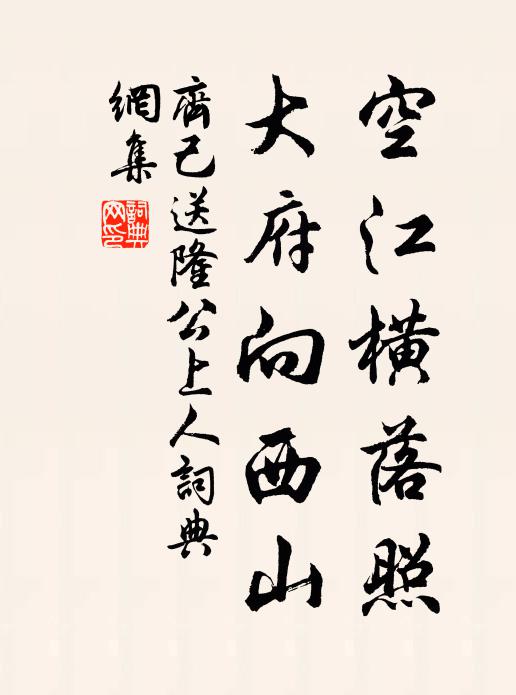 空江橫落照
大府向西山
齊己送隆公上人詞典
網集
詞典
网印